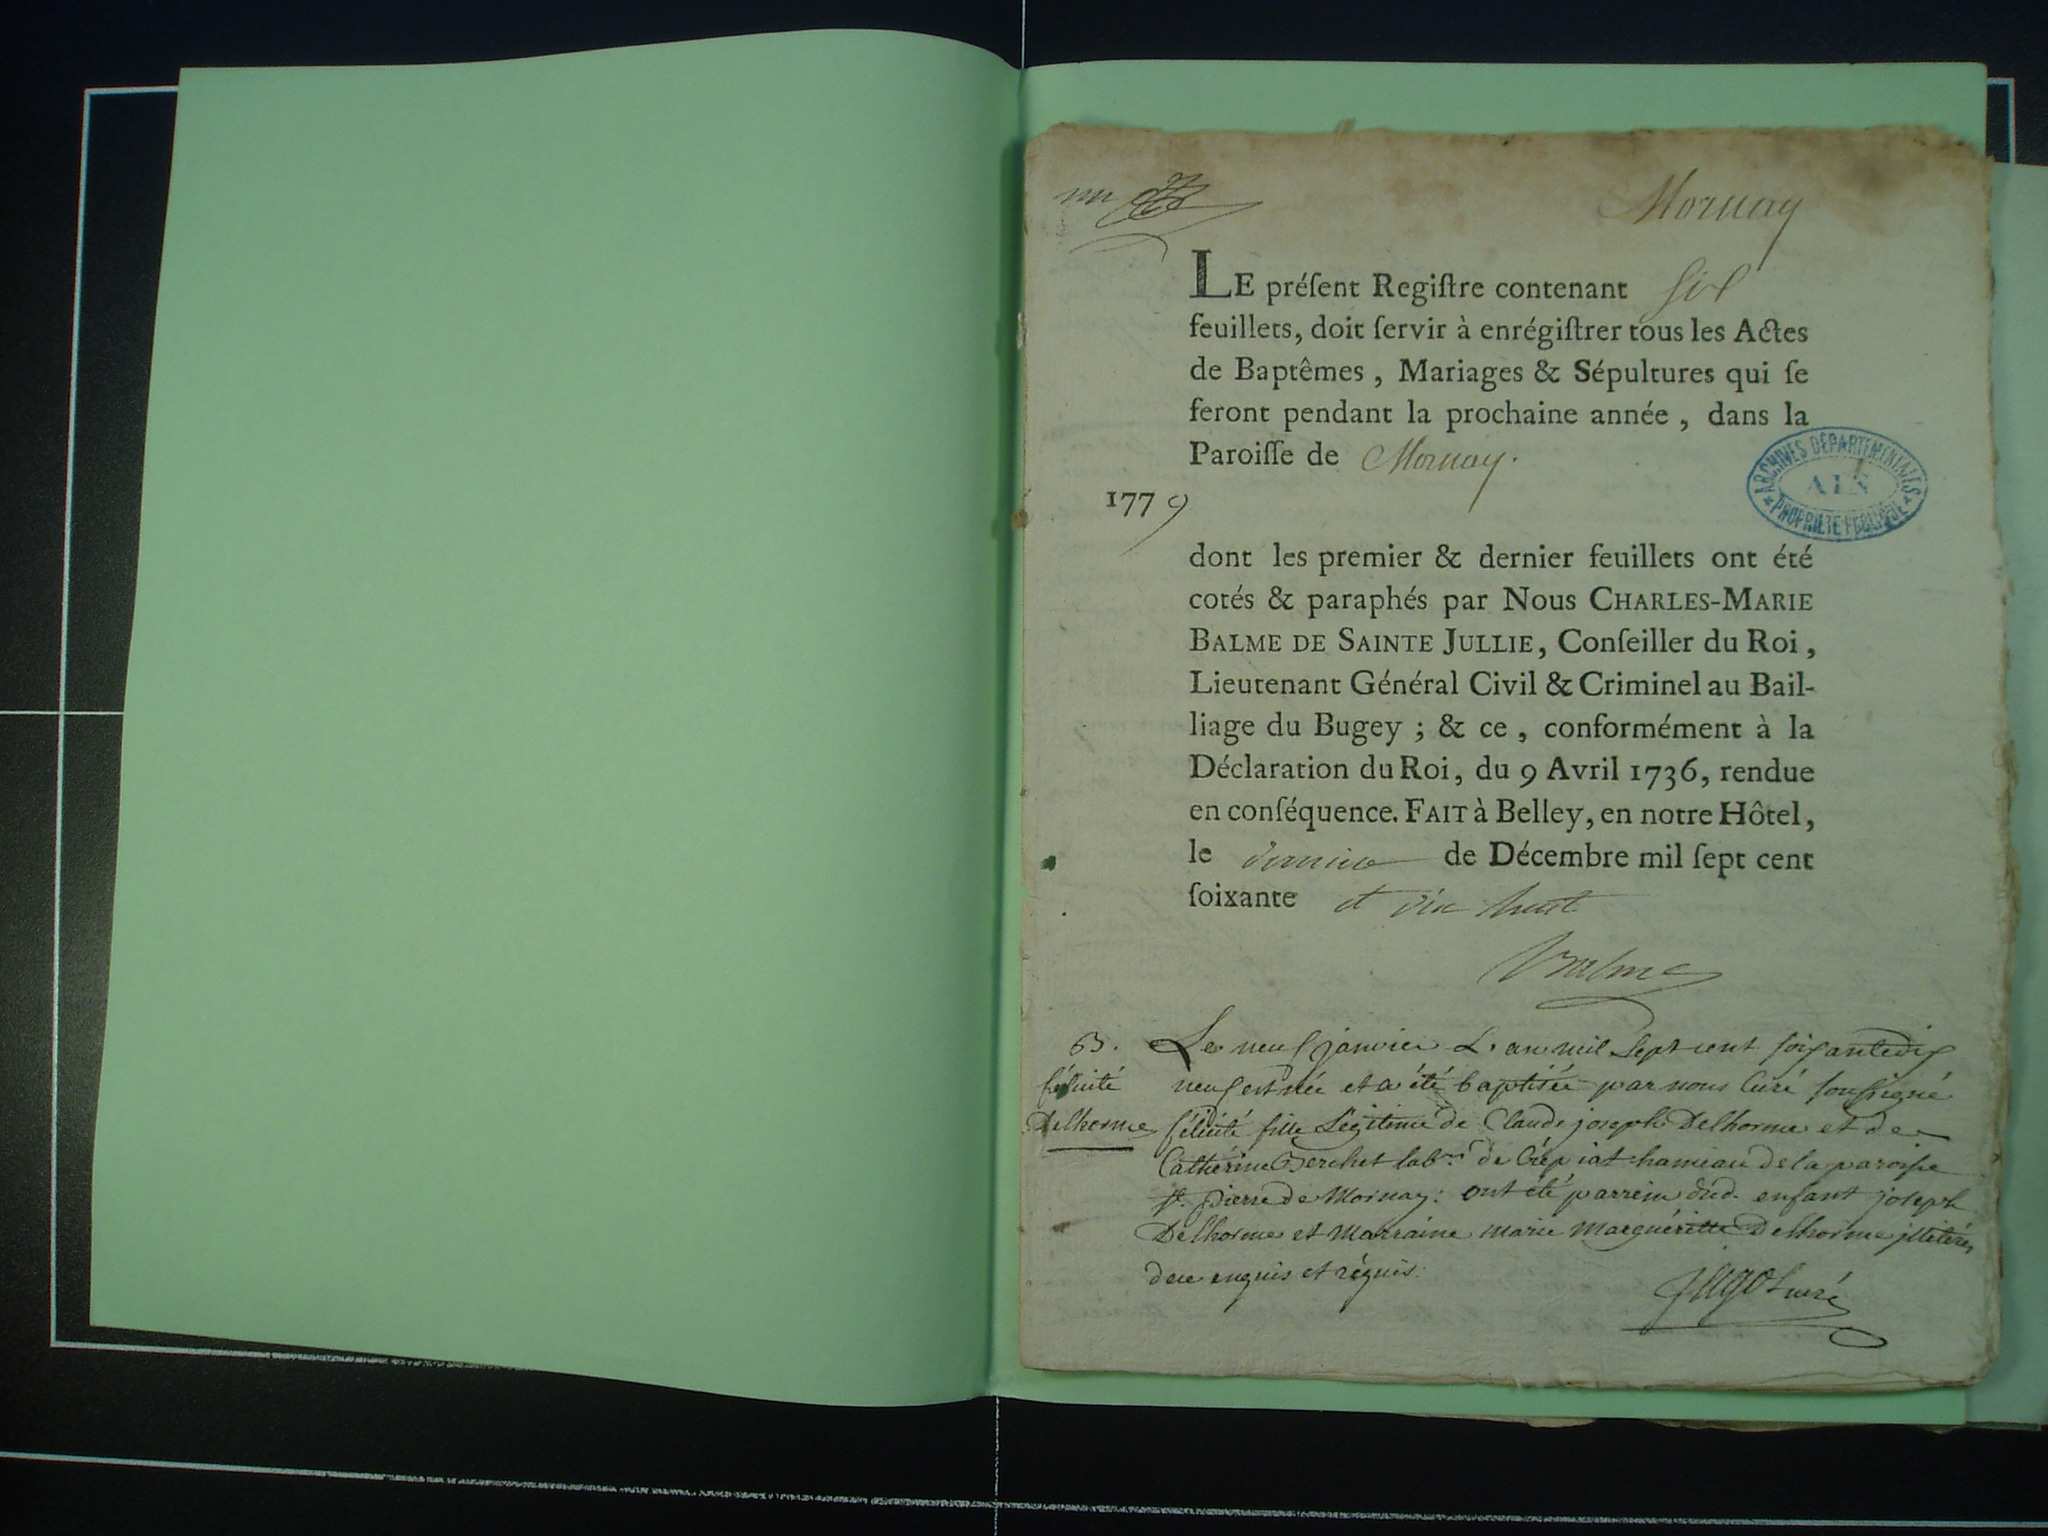 un
Mornay
LE préſent Regiſtre contenant six
feuillets, doit ſervir à enrégiſtrer tous les Actes
de Baptêmes, Mariages & Sépultures qui ſe
feront pendant la prochaine année, dans la
Paroiſſe de Mornay.
1779
ARCHIVES DÉPARTEMENTALES
AIN
PROPRIÉTÉ PUBLIQUE
dont les premier & dernier feuillets ont été
cotés & paraphés par Nous CHARLES-MARIE
BALME DE SAINTE JULLIE, Conſeiller du Roi,
Lieutenant Général Civil & Criminel au Bail-
liage du Bugey ; & ce, conformément à la
Déclaration du Roi, du 9 Avril 1736, rendue
en conſéquence. FAIT à Belley, en notre Hôtel,
le dernier de Décembre mil ſept cent
ſoixante et dix huit
Balme
B. Le neuf janvier L'an mil sept cent soixantedix
félicité neuf est née et a été baptisée par nous Curé soussigné
Delhorme félicité fille Légitime de Claude joseph Delhorme et de
Catherine Berchet lab.rs de Crépiat hameau de la paroisse
St. pierre de Mornay: ont été parrein dud. enfant joseph
Delhorme et Marraine marie Marguéritte Delhorme illitérés
de ce enquis et réquis.
curé